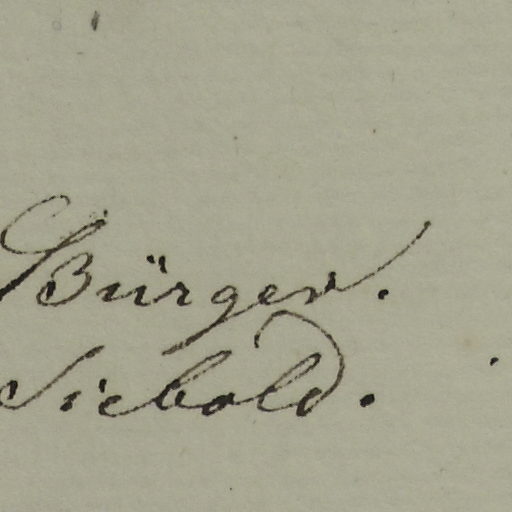 Bürger.
Siebold.